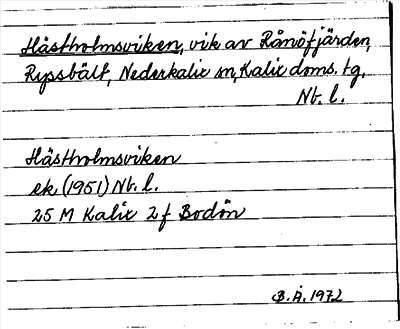 Hästholmsviken, vik av Rånöfjärden,
Ryssbält, Nederkalix sn, Kalix doms. tg.
Nb. l.
Hästholmsviken
ek (1951) Nb. l.
25 M Kalix 2 f Bodön
B. Å. 1972